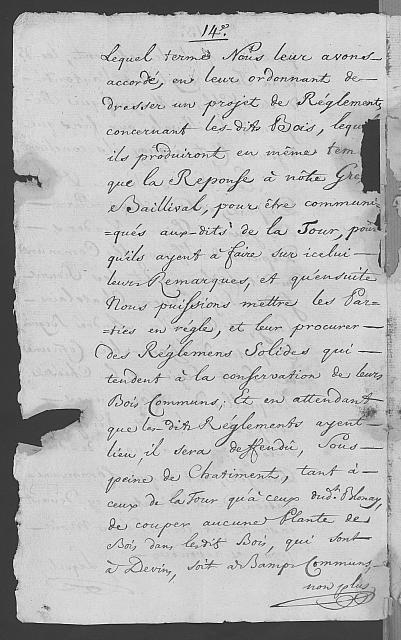 14º.
Lequel terme Nous leur avons
accordé, en leur ordonnant de
dresser un projet de Réglement
concernant les-dits Bois, lequel
ils produiront en même tem
que la Reponse à nôtre Gre
Baillival, pour être communi-
=qués aux-dits de la Tour, pour
qu'ils ayent à faire sur icelui
leurs Remarques, et qu'ensuite
Nous puissions mettre les Par-
=ties en regle, et leur procurer
des Réglemens Solides qui
tendent à la conservation de leurs
Bois Communs; Et en attendant
que les-dits Réglements ayent
lieu, il sera deffendu, Sous
peine de Chatiment, tant à
ceux de la Tour qu'à ceux dudt. Blonay,
de couper aucune Plante de
Bois dans lesdit Bois, qui sont
à Devin, soit à Bamp Communs
non plus